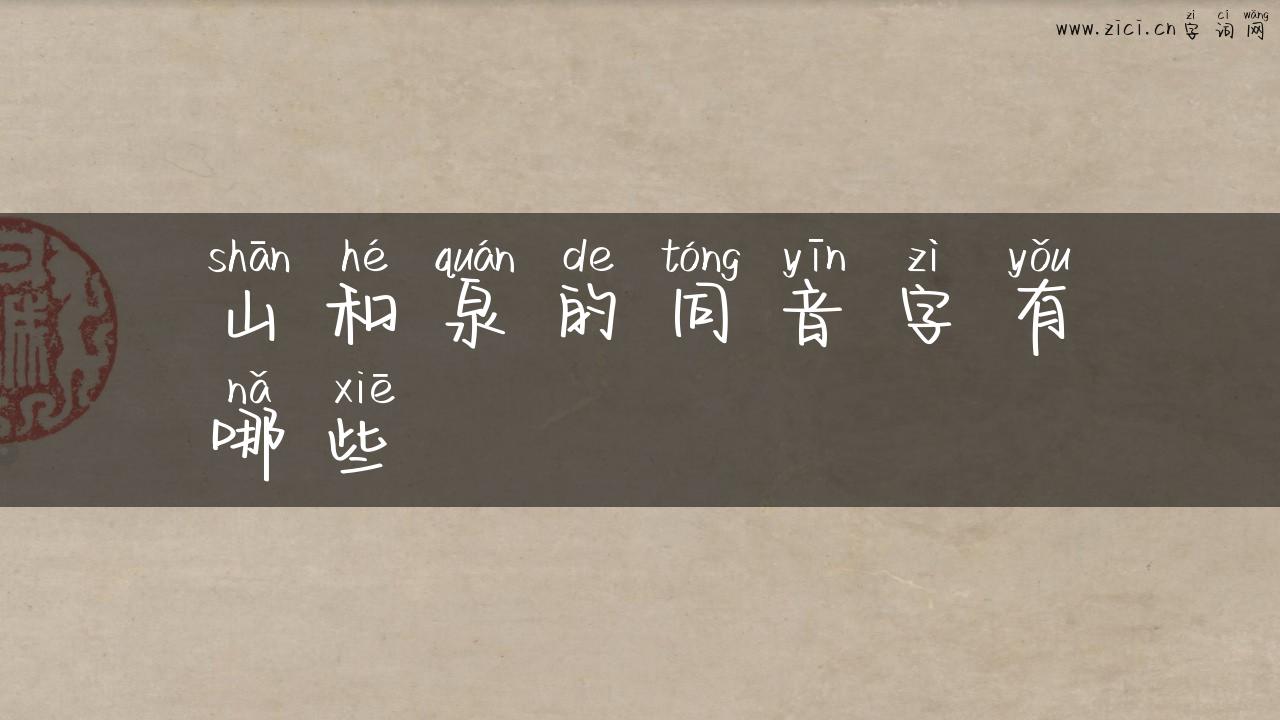 zì cí wǎng
www.zici.cn 字 词 网
shān hé quán de tóng yīn zì yǒu
山 和 泉 的 同 音 字 有
nǎ xiē
哪 些